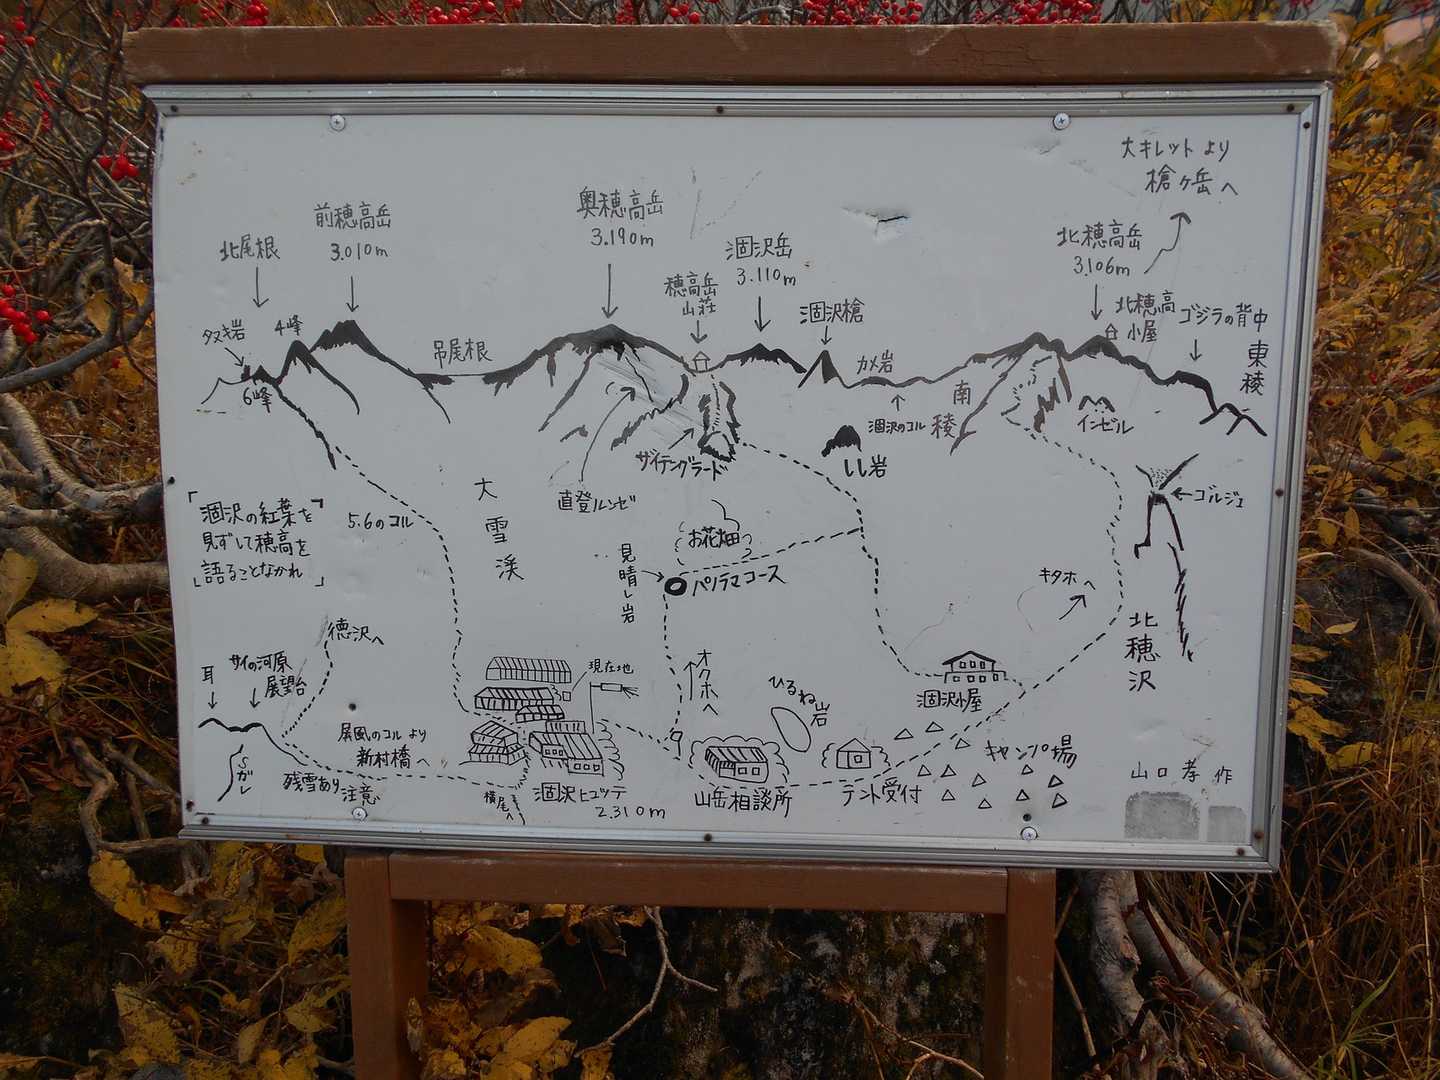 大キレットより
槍ヶ岳へ
北尾根
前穂高岳
3.010m
奥穂高岳
3.190m
穂高岳
山荘
涸沢岳
3.110m
涸沢槍
北穂高岳
3.106m
北穂高
小屋
ゴジラの背中
東稜
タヌキ岩
4峰
6峰
吊尾根
カメ岩
涸沢のコル
南稜
インゼル
ザイテングラード
直登ルンゼ
しし岩
ゴルジュ
「涸沢の紅葉を
見ずして穂高を
語ることなかれ」
5.6のコル
大雪渓
見晴し岩
お花畑
パノラマコース
キタホへ
北穂沢
徳沢へ
耳
サイの河原
展望台
現在地
オクホへ
ひるね岩
涸沢小屋
屏風のコルより
新村橋へ
Sガレ
残雪あり注意
横尾へ
涸沢ヒュッテ
2.310m
山岳相談所
テント受付
キャンプ場
山口孝作